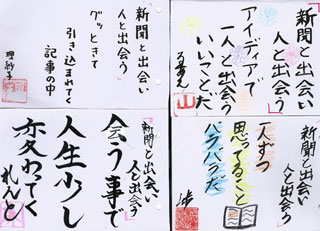 新聞と出会い
人と出会う
グッときて
引き込まれてく
記事の中
理紗子
新聞と出会い
人と出会う
アイディアで
一人と出会う
いいことだ
新聞と出会い
人と出会う
会う事で
人生少し
変わってく
れんと
新聞と出会い
人と出会う
一人ずつ
思ってること
バラバラだ
歩